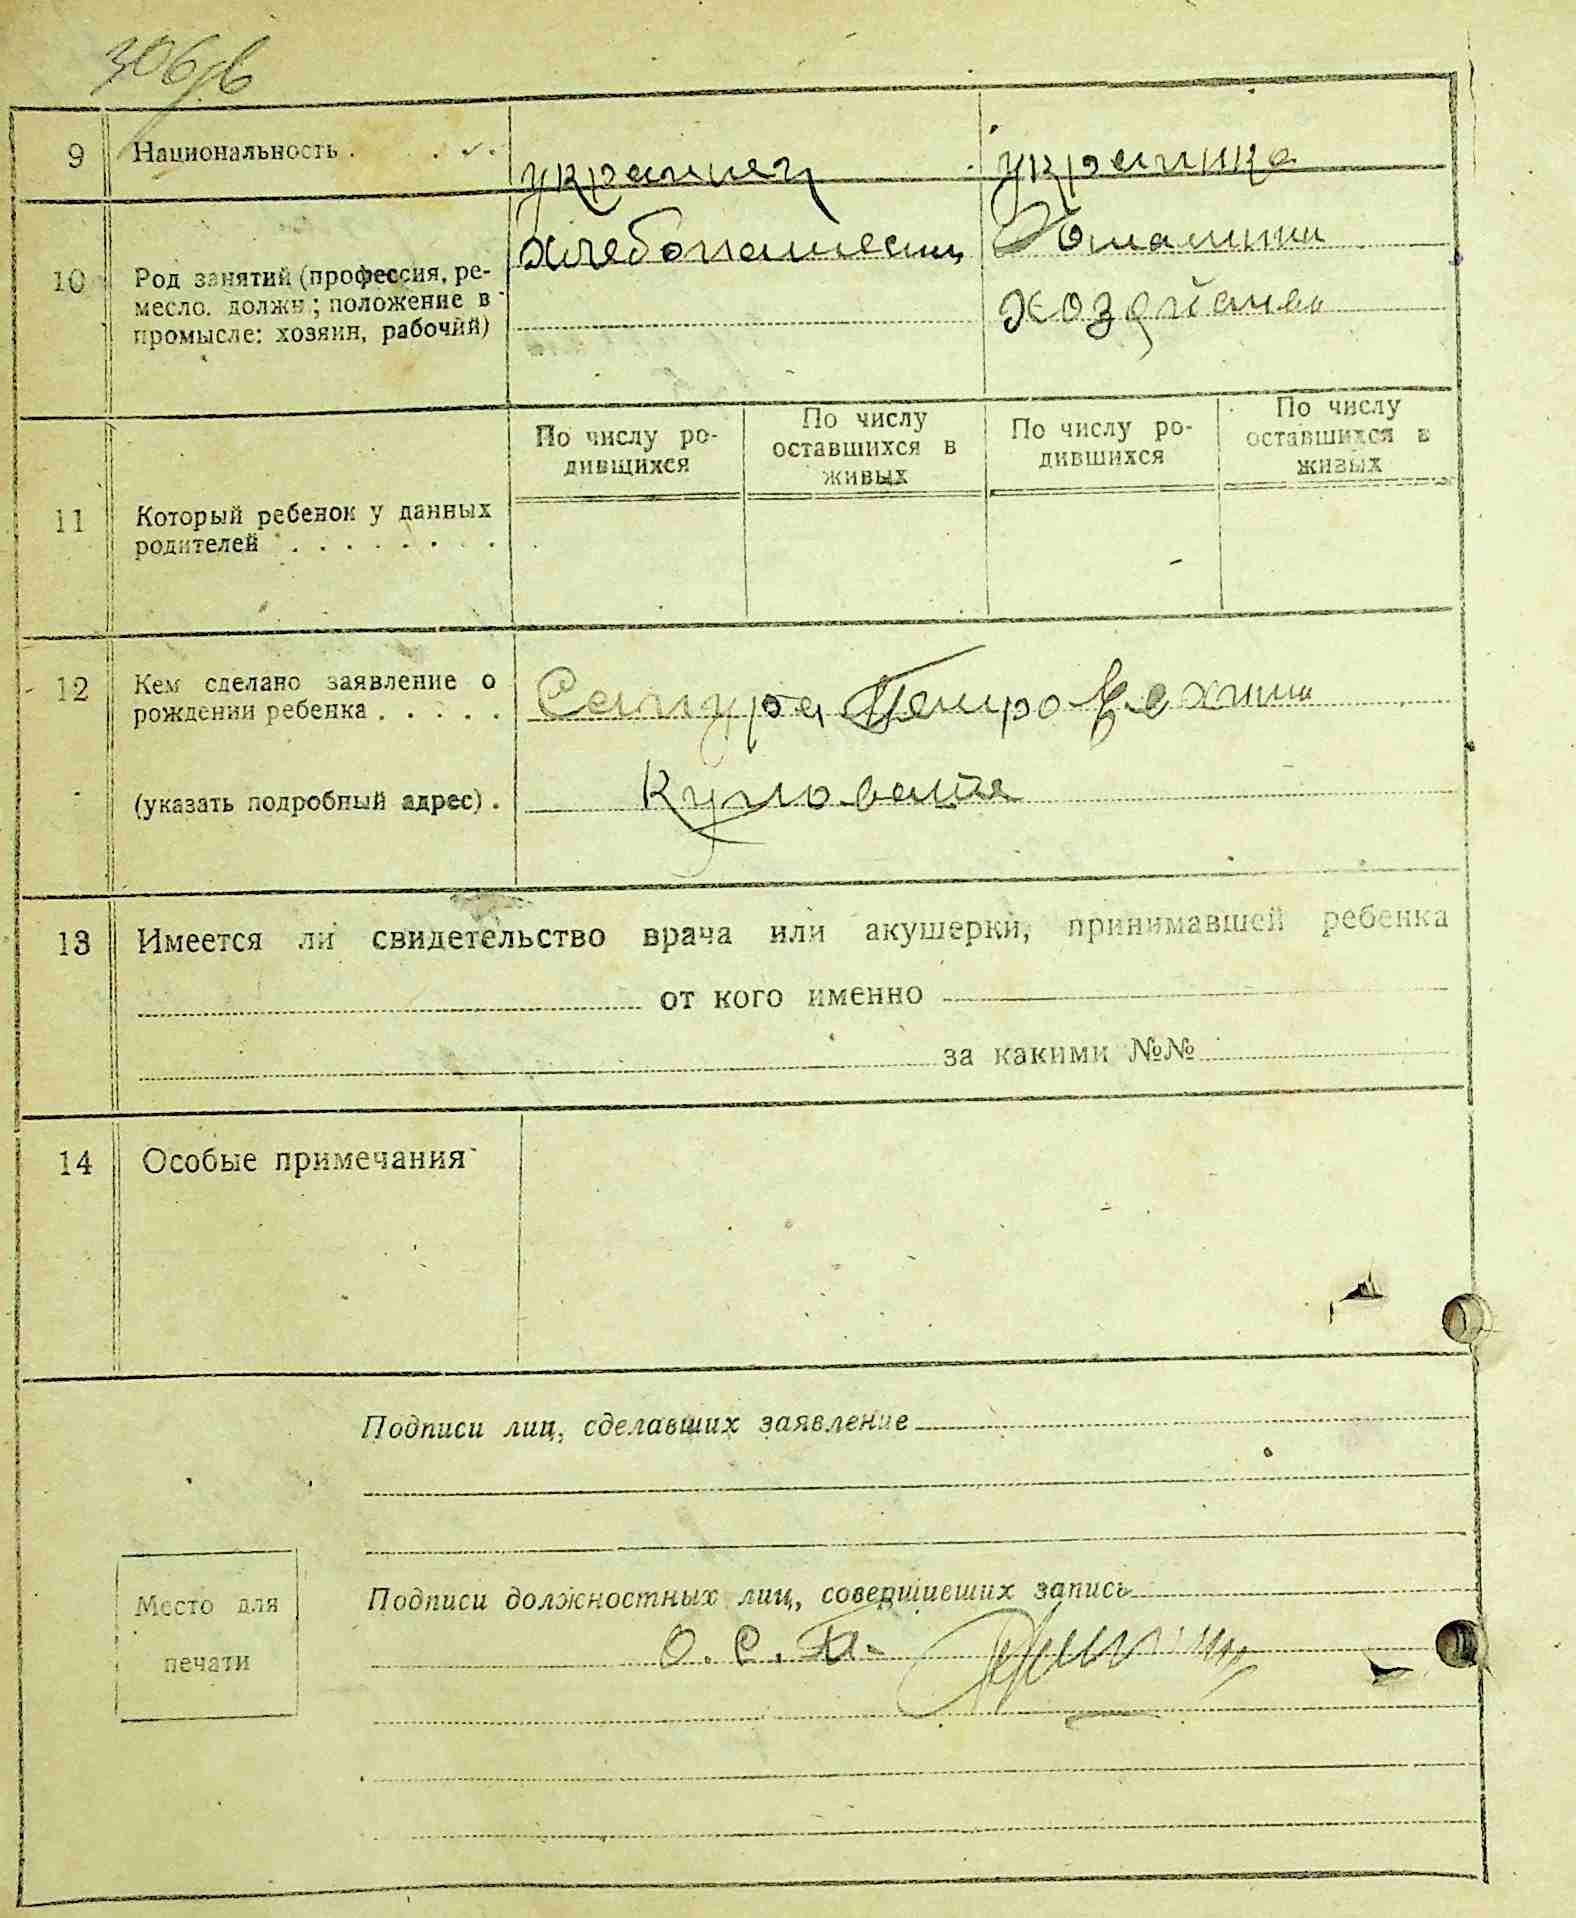 306/в
9 Национальность . . . украинец украинка
10 Род занятий (профессия, ре-
месло. должн; положение в
промысле: хозяин, рабочий)
Домашни
хозяйство
11 Который ребенок у данных
родителей . . . . . . . .
По числу ро-
дившихся
По числу
оставшихся в
живых
По числу ро-
дившихся
По числу
оставшихся в
живых
12 Кем сделано заявление о
рождении ребенка . . . . .
(указать подробный адрес) .
13 Имеется ли свидетельство врача или акушерки, принимавшей ребенка
от кого именно
за какими №№
14 Особые примечания
Подписи лиц, сделавших заявление
Подписи должностных лиц, совершивших запись
Место для
печати
О. С. П.